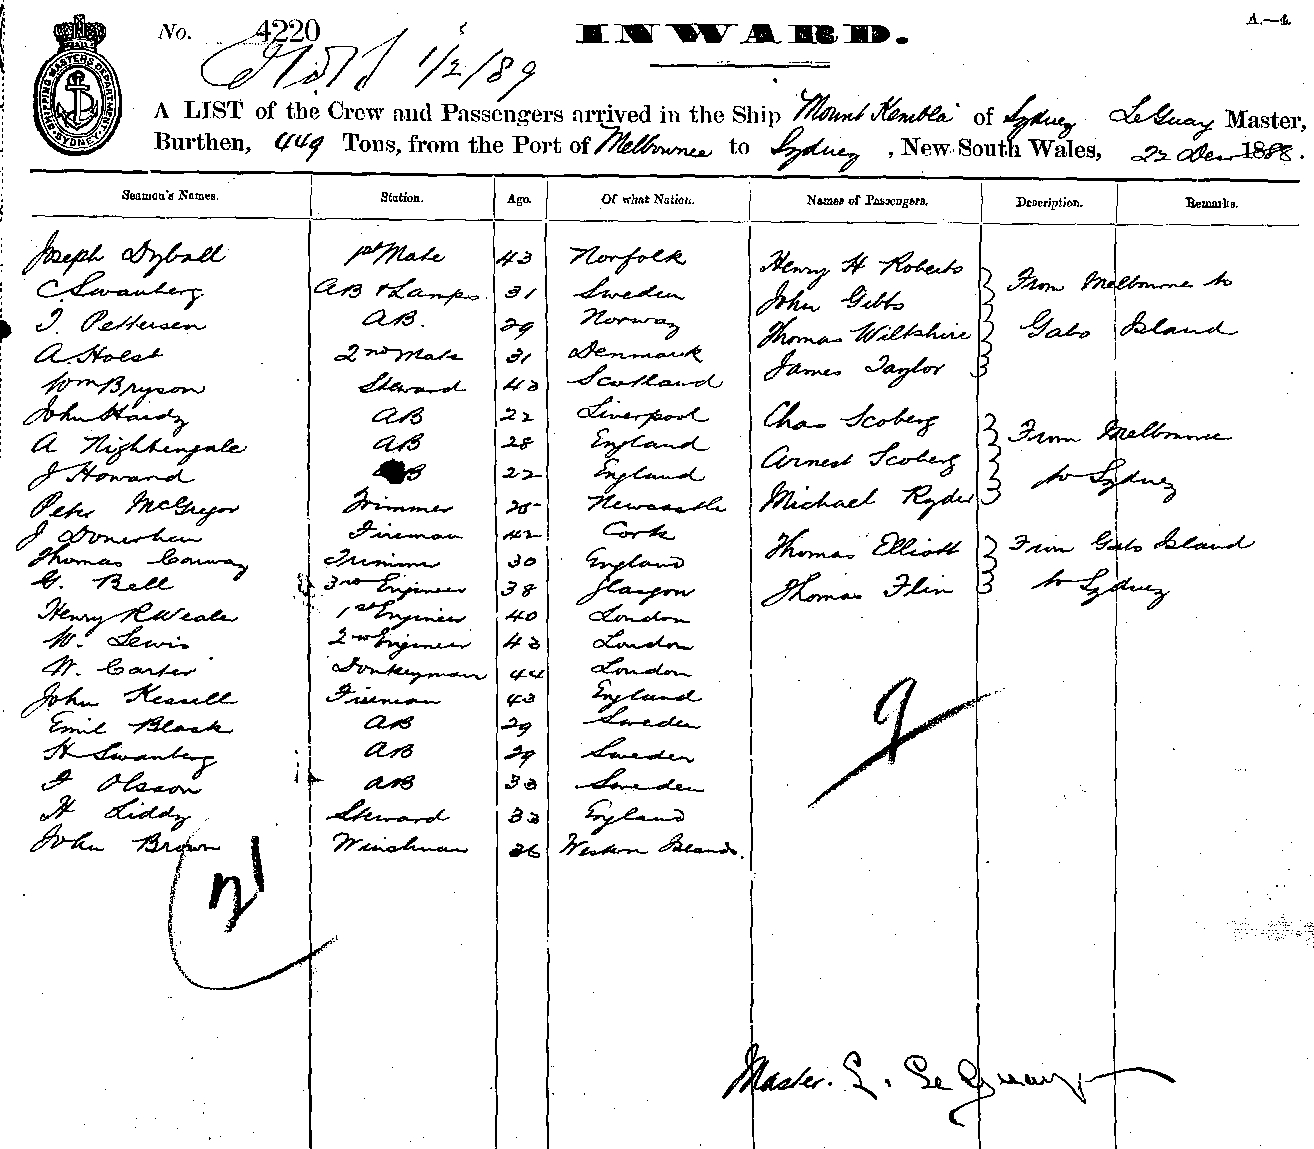 No. 4220
INWARD.
A.—4.
1/2/89
SHIPPING MASTERS DEPARTMENT SYDNEY
A LIST of the Crew and Passengers arrived in the Ship Mount Kembla of Sydney Le Guay Master,
Burthen, 449 Tons, from the Port of Melbourne to Sydney, New South Wales, 22 Decr 1888.
Seaman's Names. Station. Age. Of what Nation. Names of Passengers. Description. Remarks.
Joseph Dyball 1st Mate 43 Norfolk Henry H Roberts
C Swanberg AB & Lamps 31 Sweden John Gibbs From Melbourne to
T. Pettersen AB. 29 Norway Thomas Wiltshire Gabo Island
A. Holst 2nd Mate 31 Denmark James Taylor
Wm Bryson Steward 43 Scotland
John Hardy AB 22 Liverpool Chas Scoberg
A Nightengale AB 28 England Arnest Scoberg From Melbourne
J Howard AB 22 England to Sydney
Peter McGregor Trimmer 25 Newcastle Michael Ryder
J Fireman 42 Cork
Thomas Conway Trimmer 30 England Thomas Elliott From Gabo Island
G. Bell 3rd Engineer 38 Glasgow Thomas Flin to Sydney
Henry R Weale 1st Engineer 40 London
W. Lewis 2nd Engineer 43 London
W. Carter Donkeyman 44 London
John Kessell Fireman 43 England
Emil Black AB 29 Sweden
H Swanberg AB 29 Sweden
F Olsson AB 33 Sweden
H Liddy Steward 33 England
John Brown Winchman 26 Western Islands.
21
9
Master. L. Le Guay